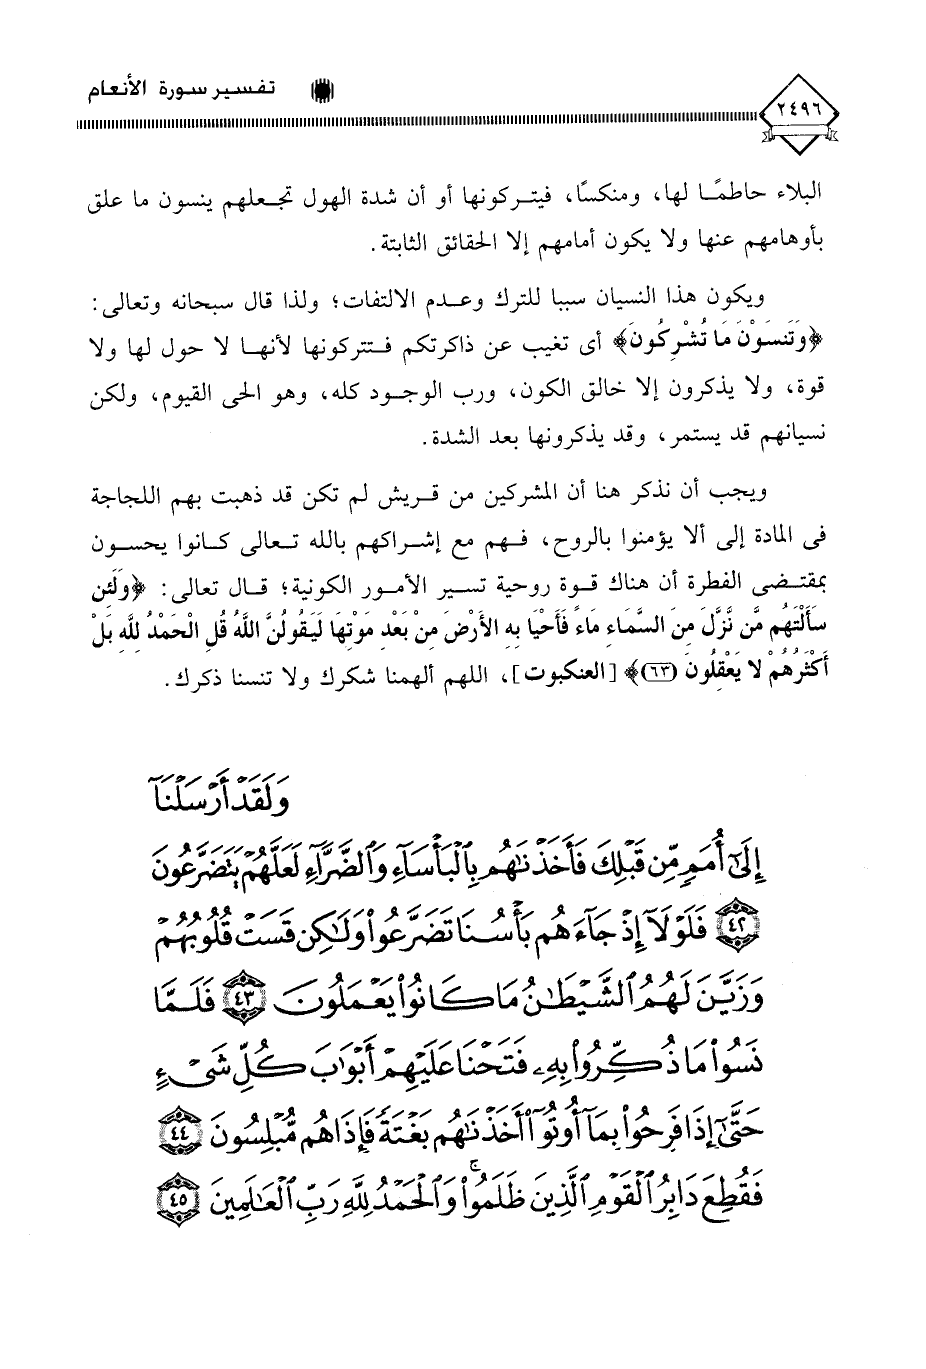 ٢٤٩٦
تفسير سورة الأنعام
البلاء حاطمًا لها، ومنكسًا، فيتركونها أو أن شدة الهول تجعلهم ينسون ما علق
بأوهامهم عنها ولا يكون أمامهم إلا الحقائق الثابتة.
ويكون هذا النسيان سببا للترك وعدم الالتفات؛ ولذا قال سبحانه وتعالى:
﴿وَتَنسَوْنَ مَا تُشْرِكُونَ﴾ أى تغيب عن ذاكرتكم فتتركونها لأنها لا حول لها ولا
قوة، ولا يذكرون إلا خالق الكون، ورب الوجود كله، وهو الحى القيوم، ولكن
نسيانهم قد يستمر، وقد يذكرونها بعد الشدة.
ويجب أن نذكر هنا أن المشركين من قريش لم تكن قد ذهبت بهم اللجاجة
فى المادة إلى ألا يؤمنوا بالروح، فهم مع إشراكهم بالله تعالى كانوا يحسون
بمقتضى الفطرة أن هناك قوة روحية تسير الأمور الكونية؛ قال تعالى: ﴿وَلَئِن
سَأَلْتَهُم مَّن نَّزَّلَ مِنَ السَّمَاءِ مَاءً فَأَحْيَا بِهِ الأَرْضَ مِنْ بَعْدِ مَوْتِهَا لَيَقُولُنَّ اللَّهُ قُلِ الْحَمْدُ لِلَّهِ بَلْ
أَكْثَرُهُمْ لا يَعْقِلُونَ (٦٣)﴾ [العنكبوت]، اللهم ألهمنا شكرك ولا تنسنا ذكرك.
وَلَقَدْ أَرْسَلْنَآ
إِلَىٰٓ أُمَمٍ مِّن قَبْلِكَ فَأَخَذْنَٰهُم بِٱلْبَأْسَآءِ وَٱلضَّرَّآءِ لَعَلَّهُمْ يَتَضَرَّعُونَ
٤٢ فَلَوْلَآ إِذْ جَآءَهُم بَأْسُنَا تَضَرَّعُوا۟ وَلَٰكِن قَسَتْ قُلُوبُهُمْ
وَزَيَّنَ لَهُمُ ٱلشَّيْطَٰنُ مَا كَانُوا۟ يَعْمَلُونَ ٤٣ فَلَمَّا
نَسُوا۟ مَا ذُكِّرُوا۟ بِهِۦ فَتَحْنَا عَلَيْهِمْ أَبْوَٰبَ كُلِّ شَىْءٍ
حَتَّىٰٓ إِذَا فَرِحُوا۟ بِمَآ أُوتُوٓا۟ أَخَذْنَٰهُم بَغْتَةً فَإِذَا هُم مُّبْلِسُونَ ٤٤
فَقُطِعَ دَابِرُ ٱلْقَوْمِ ٱلَّذِينَ ظَلَمُوا۟ ۚ وَٱلْحَمْدُ لِلَّهِ رَبِّ ٱلْعَٰلَمِينَ ٤٥